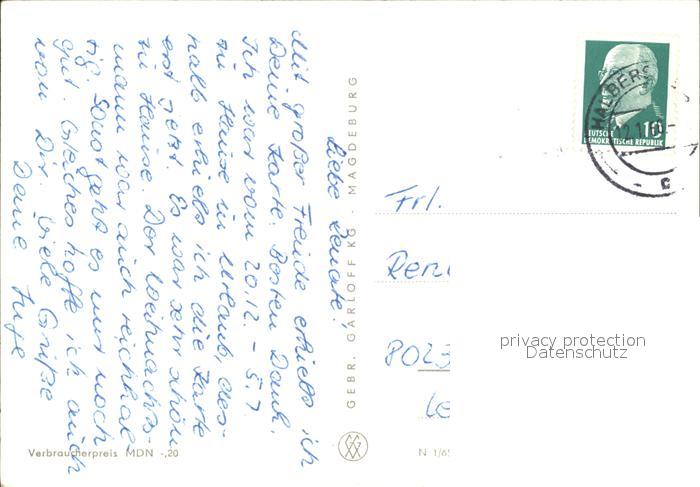 Liebe Renate!
Mit großer Freude erhielt ich
Deine Karte. Besten Dank.
Ich war vom 20.12. – 5.1.
zu Hause in Urlaub, des-
halb erhielt ich die Karte
erst jetzt. Es war sehr schön
zu Hause. Der Weihnachts-
mann war auch reichhal-
tig. Sonst geht es mir noch
gut. Gleiches hoffe ich auch
von Dir. Viele Grüße
Deine Inge
Verbraucherpreis MDN -,20
GEBR. GARLOFF KG · MAGDEBURG
N 1/65
HALBERS
12.1.6
c
10
DEUTSCHE
DEMOKRATISCHE REPUBLIK
Frl.
Ren
8023
Le
privacy protection
Datenschutz